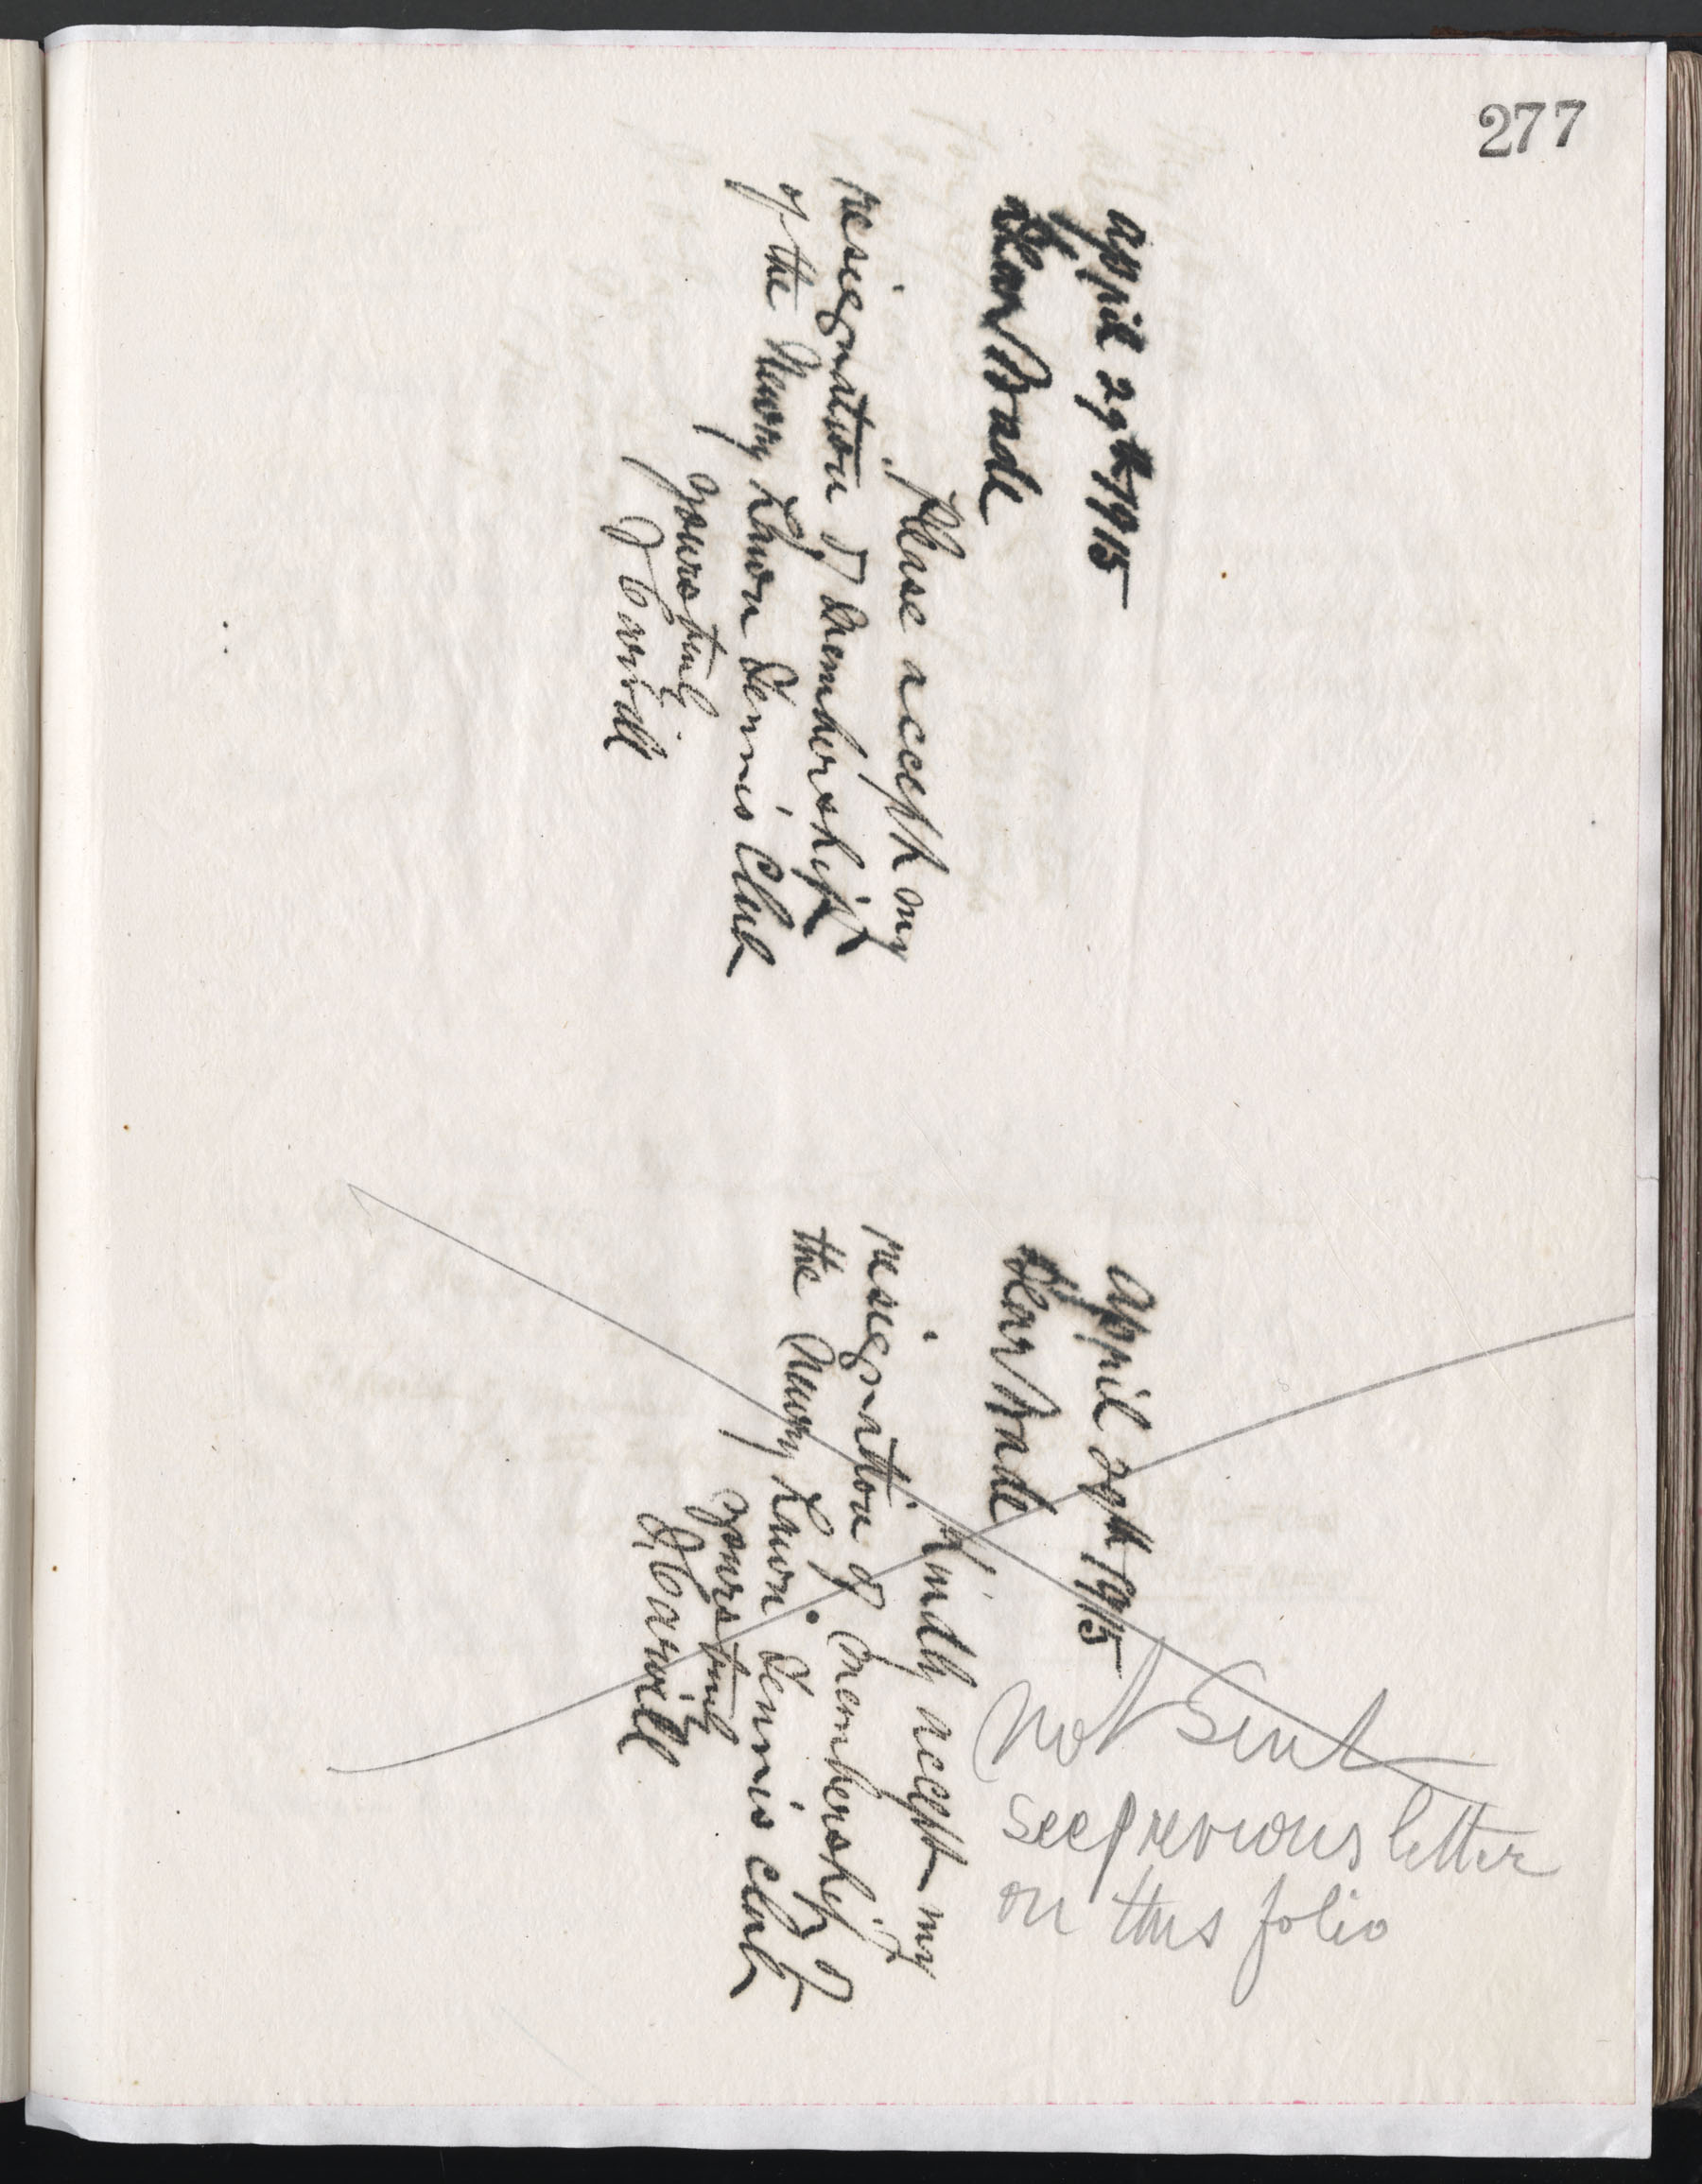 277
April 29th 1915
Dear Wade
Please accept my
resignation of membership
of the Newry Lawn Tennis Club
Yours truly
J Carvill
April 29th 1915
Dear Wade
Kindly accept my
resignation of membership of
the Newry Lawn Tennis Club
Yours truly
J Carvill
Not Sent
see previous letter
on this folio